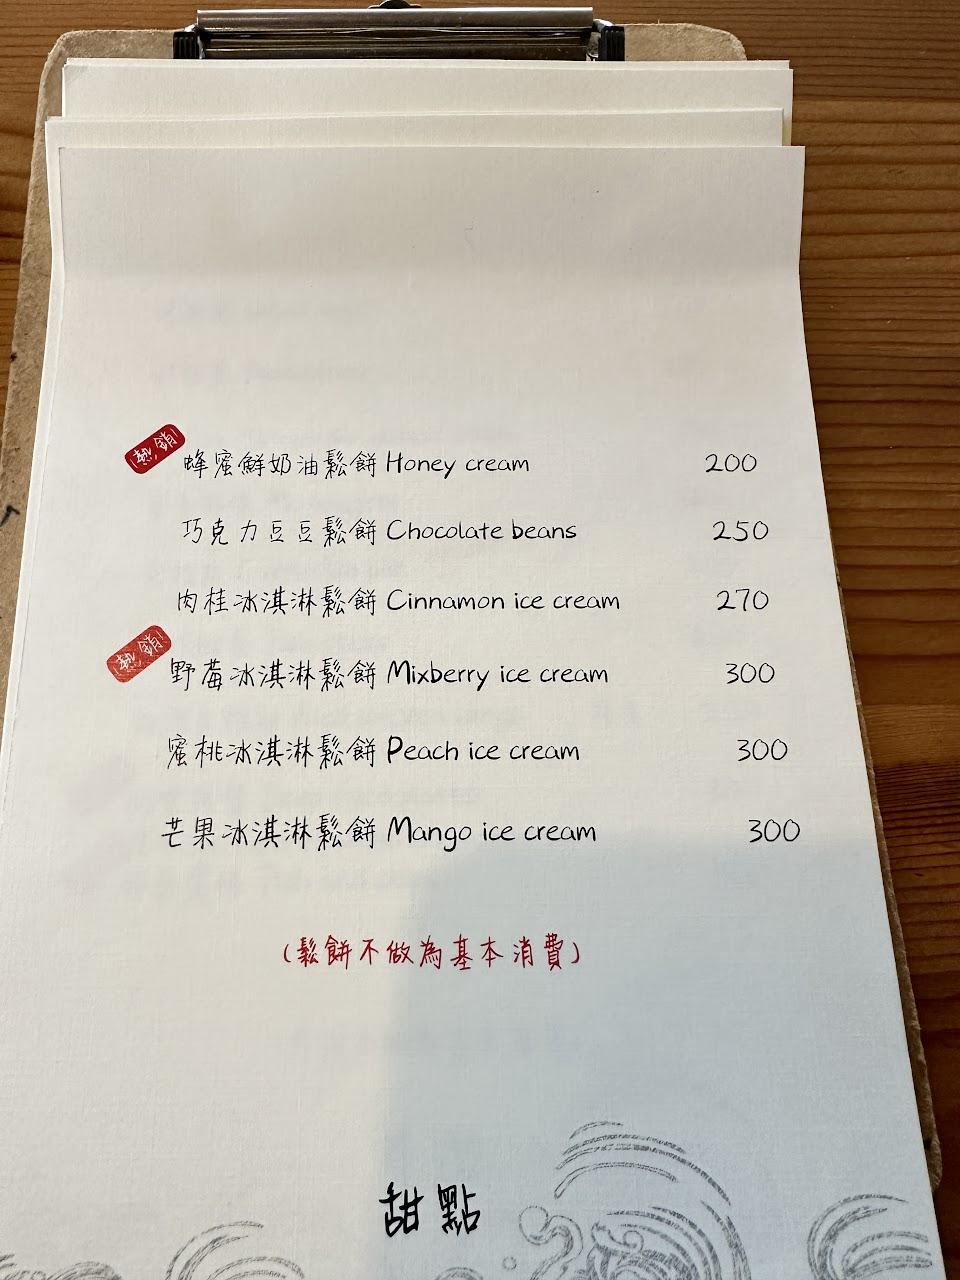 熱銷
蜂蜜鮮奶油鬆餅 Honey cream 200
巧克力豆豆鬆餅 Chocolate beans 250
肉桂冰淇淋鬆餅 Cinnamon ice cream 270
熱銷
野莓冰淇淋鬆餅 Mixberry ice cream 300
蜜桃冰淇淋鬆餅 Peach ice cream 300
芒果冰淇淋鬆餅 Mango ice cream 300
(鬆餅不做為基本消費)
甜點